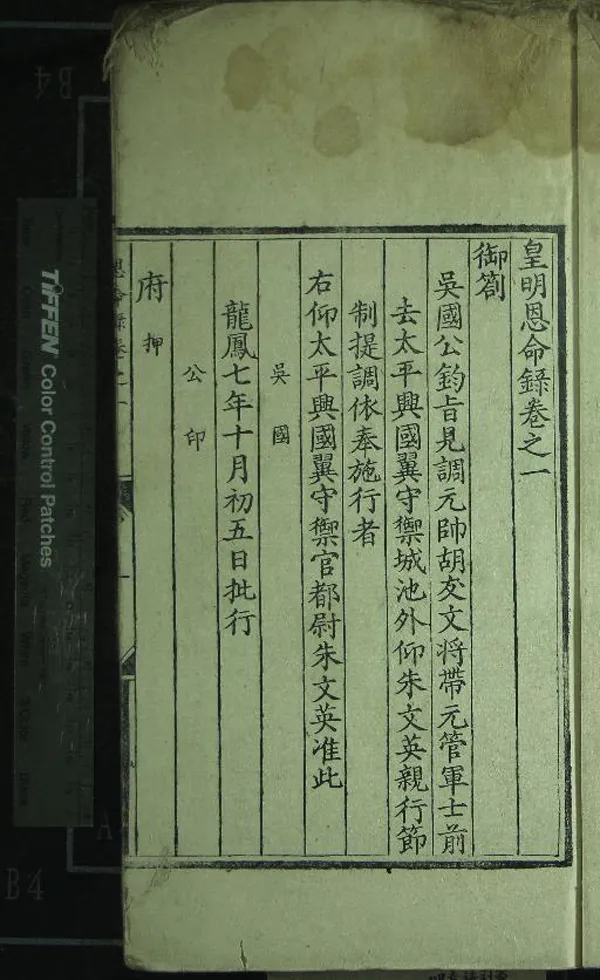 皇明恩命錄卷之一
御劄
吳國公鈞旨見調元帥胡友文將帶元管軍士前
去太平興國翼守禦城池外仰朱文英親行節
制提調依奉施行者
右仰太平興國翼守禦官都尉朱文英准此
吳國
龍鳳七年十月初五日批行
公印
府押
恩命錄卷之一
TIFFEN Color Control Patches
B4
B4
A